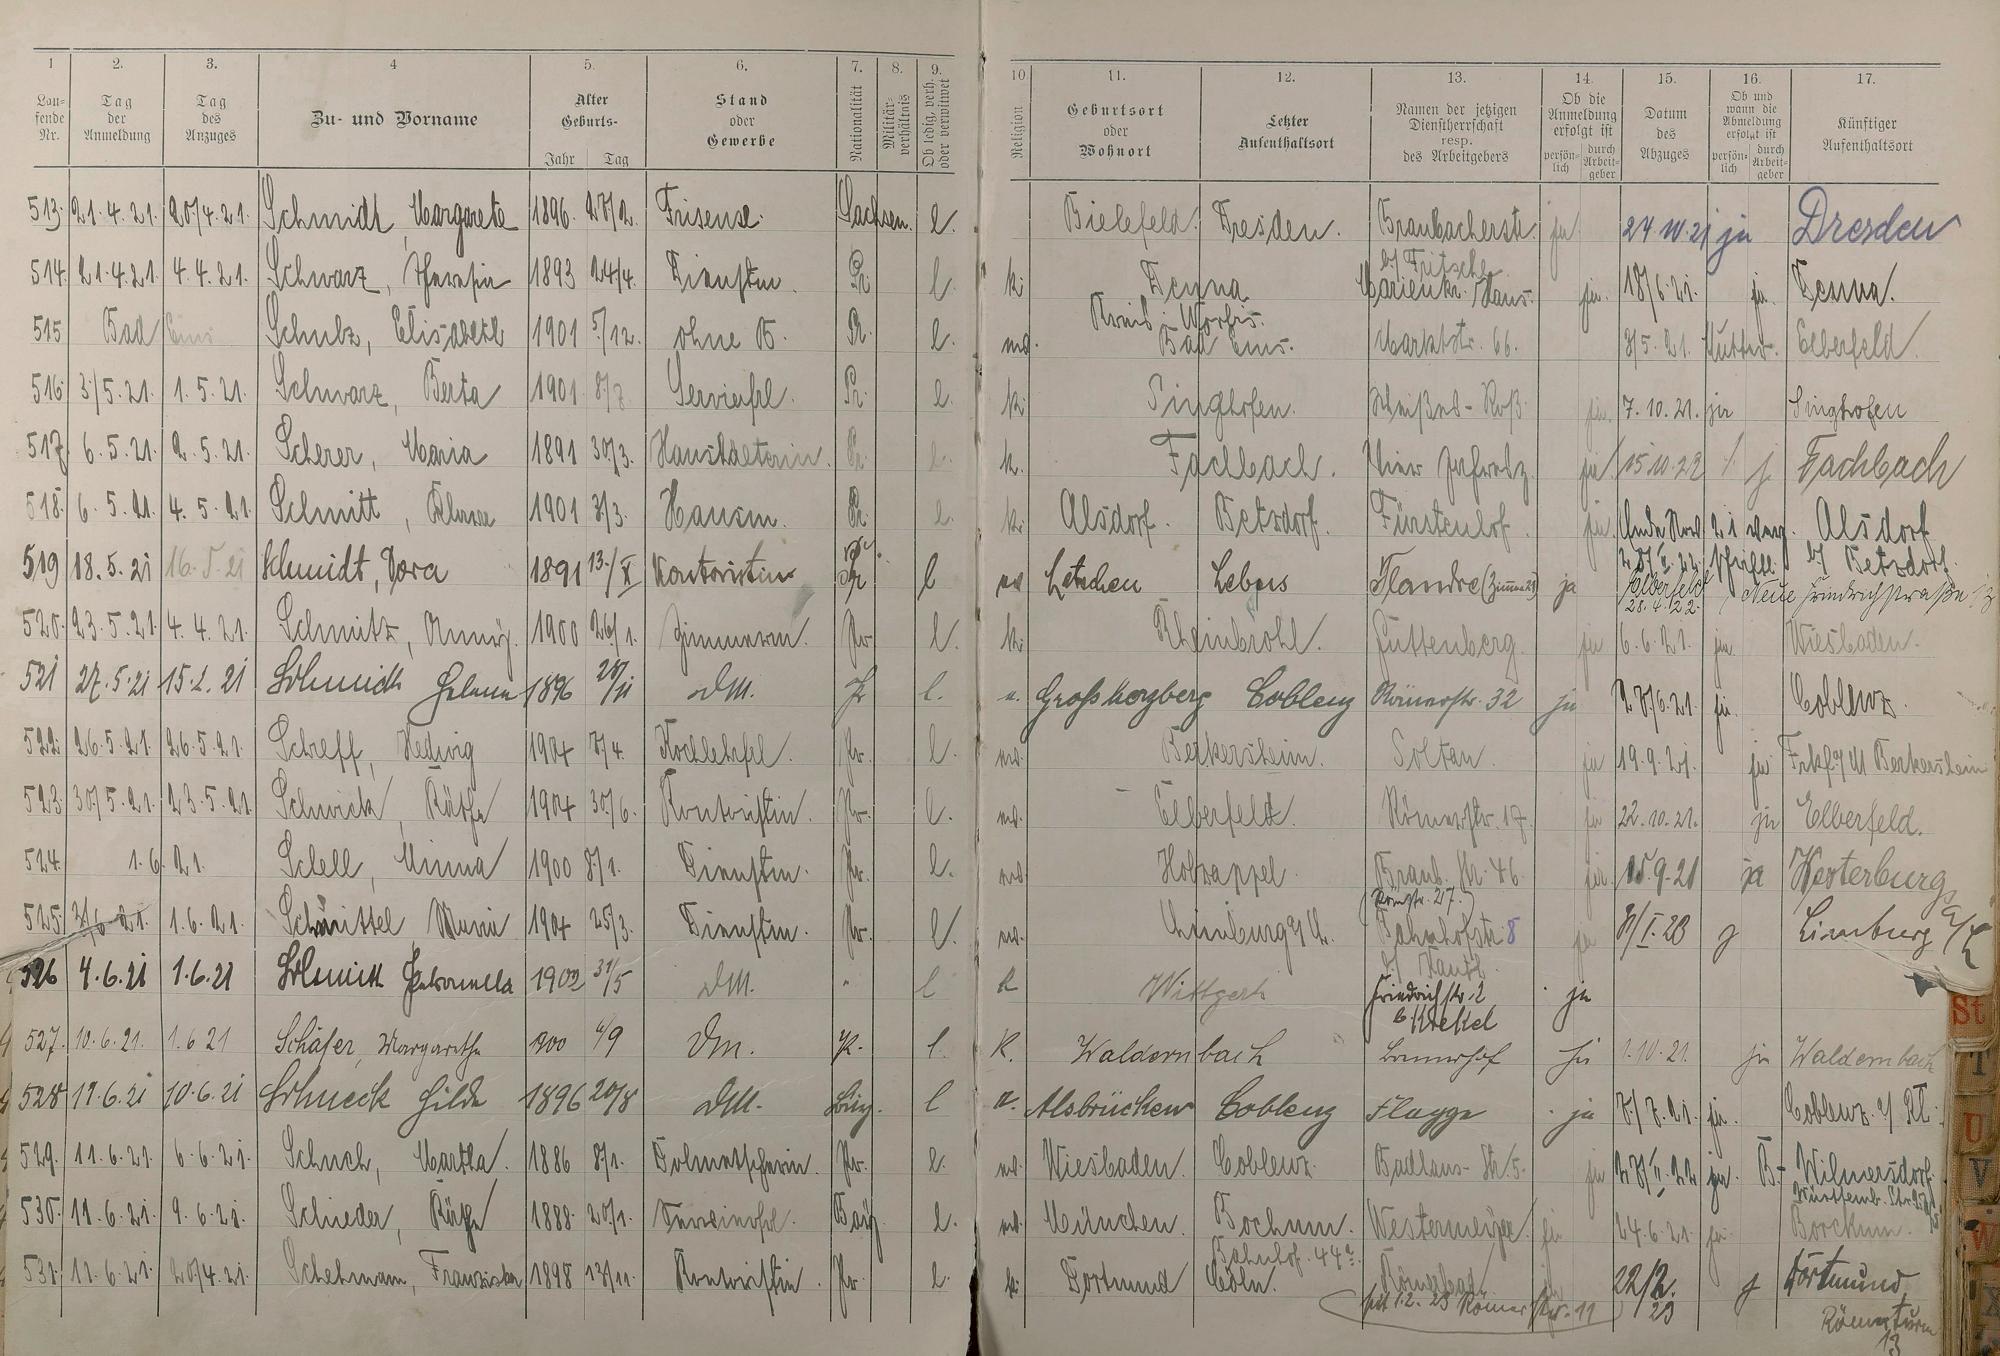 1 2. 3. 4 5. 6. 7. 8. 9. 10 11. 12. 13. 14. 15. 16. 17.
Lau-
fende
Nr.
Tag
der
Anmeldung
Tag
des
Anzuges
Zu- und Vorname
Alter
Geburts-
Jahr Tag
Stand
oder
Gewerbe
Nationalität
Militär-
verhältnis
Ob ledig, verh.
oder verwitwet
Religion
Geburtsort
oder
Wohnort
Letzter
Aufenthaltsort
Namen der jetzigen
Dienstherrschaft
resp.
des Arbeitgebers
Ob die
Anmeldung
erfolgt ist
persön-
lich
durch
Arbeit-
geber
Datum
des
Abzuges
Ob und
wann die
Abmeldung
erfolgt ist
persön-
lich
durch
Arbeit-
geber
Künftiger
Aufenthaltsort
513. 21.4.21. 20/4.21. Schmidt, Margarete 1896. 27/2. Friseuse. Sachsen. l. Bielefeld. Dresden. Braubacherstr. ja 24.10.21 ja Dresden
b/ Fritsche
514. 21.4.21. 4.4.21. Schwarz, Theresia 1893 24/4. Dienstm. Pr. l. k. Marienkr. Haus. ja. 18/6.21. ja.
Kreis Worbis.
515 Bad Ems Schulz, Elisabeth 1901 5/12. ohne B. Pr. l. Bad Ems. Marktstr. 66. 3/5.21. Mutter. Elberfeld.
516. 3/5.21. 1.5.21. Schwarz, Berta 1901 8/7 Servierfrl. Pr. l. k. Singhofen. Weißes-Roß. ja. 7.10.21. ja Singhofen
517. 6.5.21. 2.5.21. Scherer, Maria 1891 30/3. Haushälterin. Pr. l. k. Fachbach. ja 15.10.22 j. Fachbach
518. 6.5.21. 4.5.21. Schmitt, 1901 3/3. Hausm. Pr. l. k. Alsdorf. Betzdorf. Fürstenhof. ja Alsdorf
b/ Betzdorf.
519 18.5.21 16.5.21 Schmidt, Dora 1891 13./X Kontoristin Pr l Flandre (Zimmer 23) ja Elberfeld Neue Friedrichstraße 13
28.4.22.
520. 23.5.21. 4.4.21. Schmitz, Änny. 1900 26/1. Zimmerm. Pr. l. k. Rheinbrohl. Guttenberg. ja 6.6.21. ja. Wiesbaden.
521 27.5.21 15.2.21 Schmidt Helene 1896 28/11 DM. Pr l. Coblenz Römerstr. 32 ja 28/6.21. ja. Coblenz.
522. 26.5.21. 26.5.21. Schreff, Hedwig 1904 7/4. Kochlehrfrl. Pr. l. Berkersheim. Soltau. ja 19.9.21. ja Frkf. a/M Berkersheim
523. 30/5.21. 23.5.21. Schwick, Käthe 1904 30/6. Kontoristin. Pr. l. Elberfeld. Römerstr. 17. ja 22.10.21. ja Elberfeld.
524. 1.6.21. Schell, Minna 1900 8/1. Dienstm. Pr. l. Holzappel. Braub. Str. 46. ja. 15.9.21 ja Westerburg
(Römstr. 27.)
525. 3/6.21. 1.6.21. Schmittel, Maria 1904 25/3. Dienstm. Pr. l. Limburg a/L. Bahnhofstr. 8 ja 3/I.23 j Limburg a/L
526 4.6.21 1.6.21 Schmidt Petronella 1902 31/5 DM. " l k Wittgert Friedrichstr. 2 ja
b. Krekel
527. 10.6.21. 1.6.21 Schäfer, Margarethe 1900 4/9 DM. Pr. l. K. Waldernbach ja 1.10.21. ja Waldernbach
528 11.6.21 10.6.21 Schneck Hilde 1896 20/8 DM. l Alsbrücken Coblenz Flagge ja 7/7.21. ja. Coblenz a/Rh.
529. 11.6.21. 6.6.21. Schuch, Martha. 1886 8/1. Dolmetscherin. Pr. l. Wiesbaden. Coblenz. Badhaus-Str. 5. ja 28/II.22 ja. B.-Wilmersdorf.
530. 11.6.21. 9.6.21. Schieder, Käthe 1888. 20/1. Servierfrl. Bay. l. München. Bochum. Westermeyer ja 24.6.21. ja. Borckum.
Bahnhof. 44a.
531. 11.6.21. 20/4.21. Schehmann, Franziska 1898 13/11. Kontoristin. Pr. l. k. Dortmund Cöln. Römerbad ja 22/2. j Dortmund
seit 1.2.23 Römerstr. 11 23 Römerturm
13
St
T
U
V
W